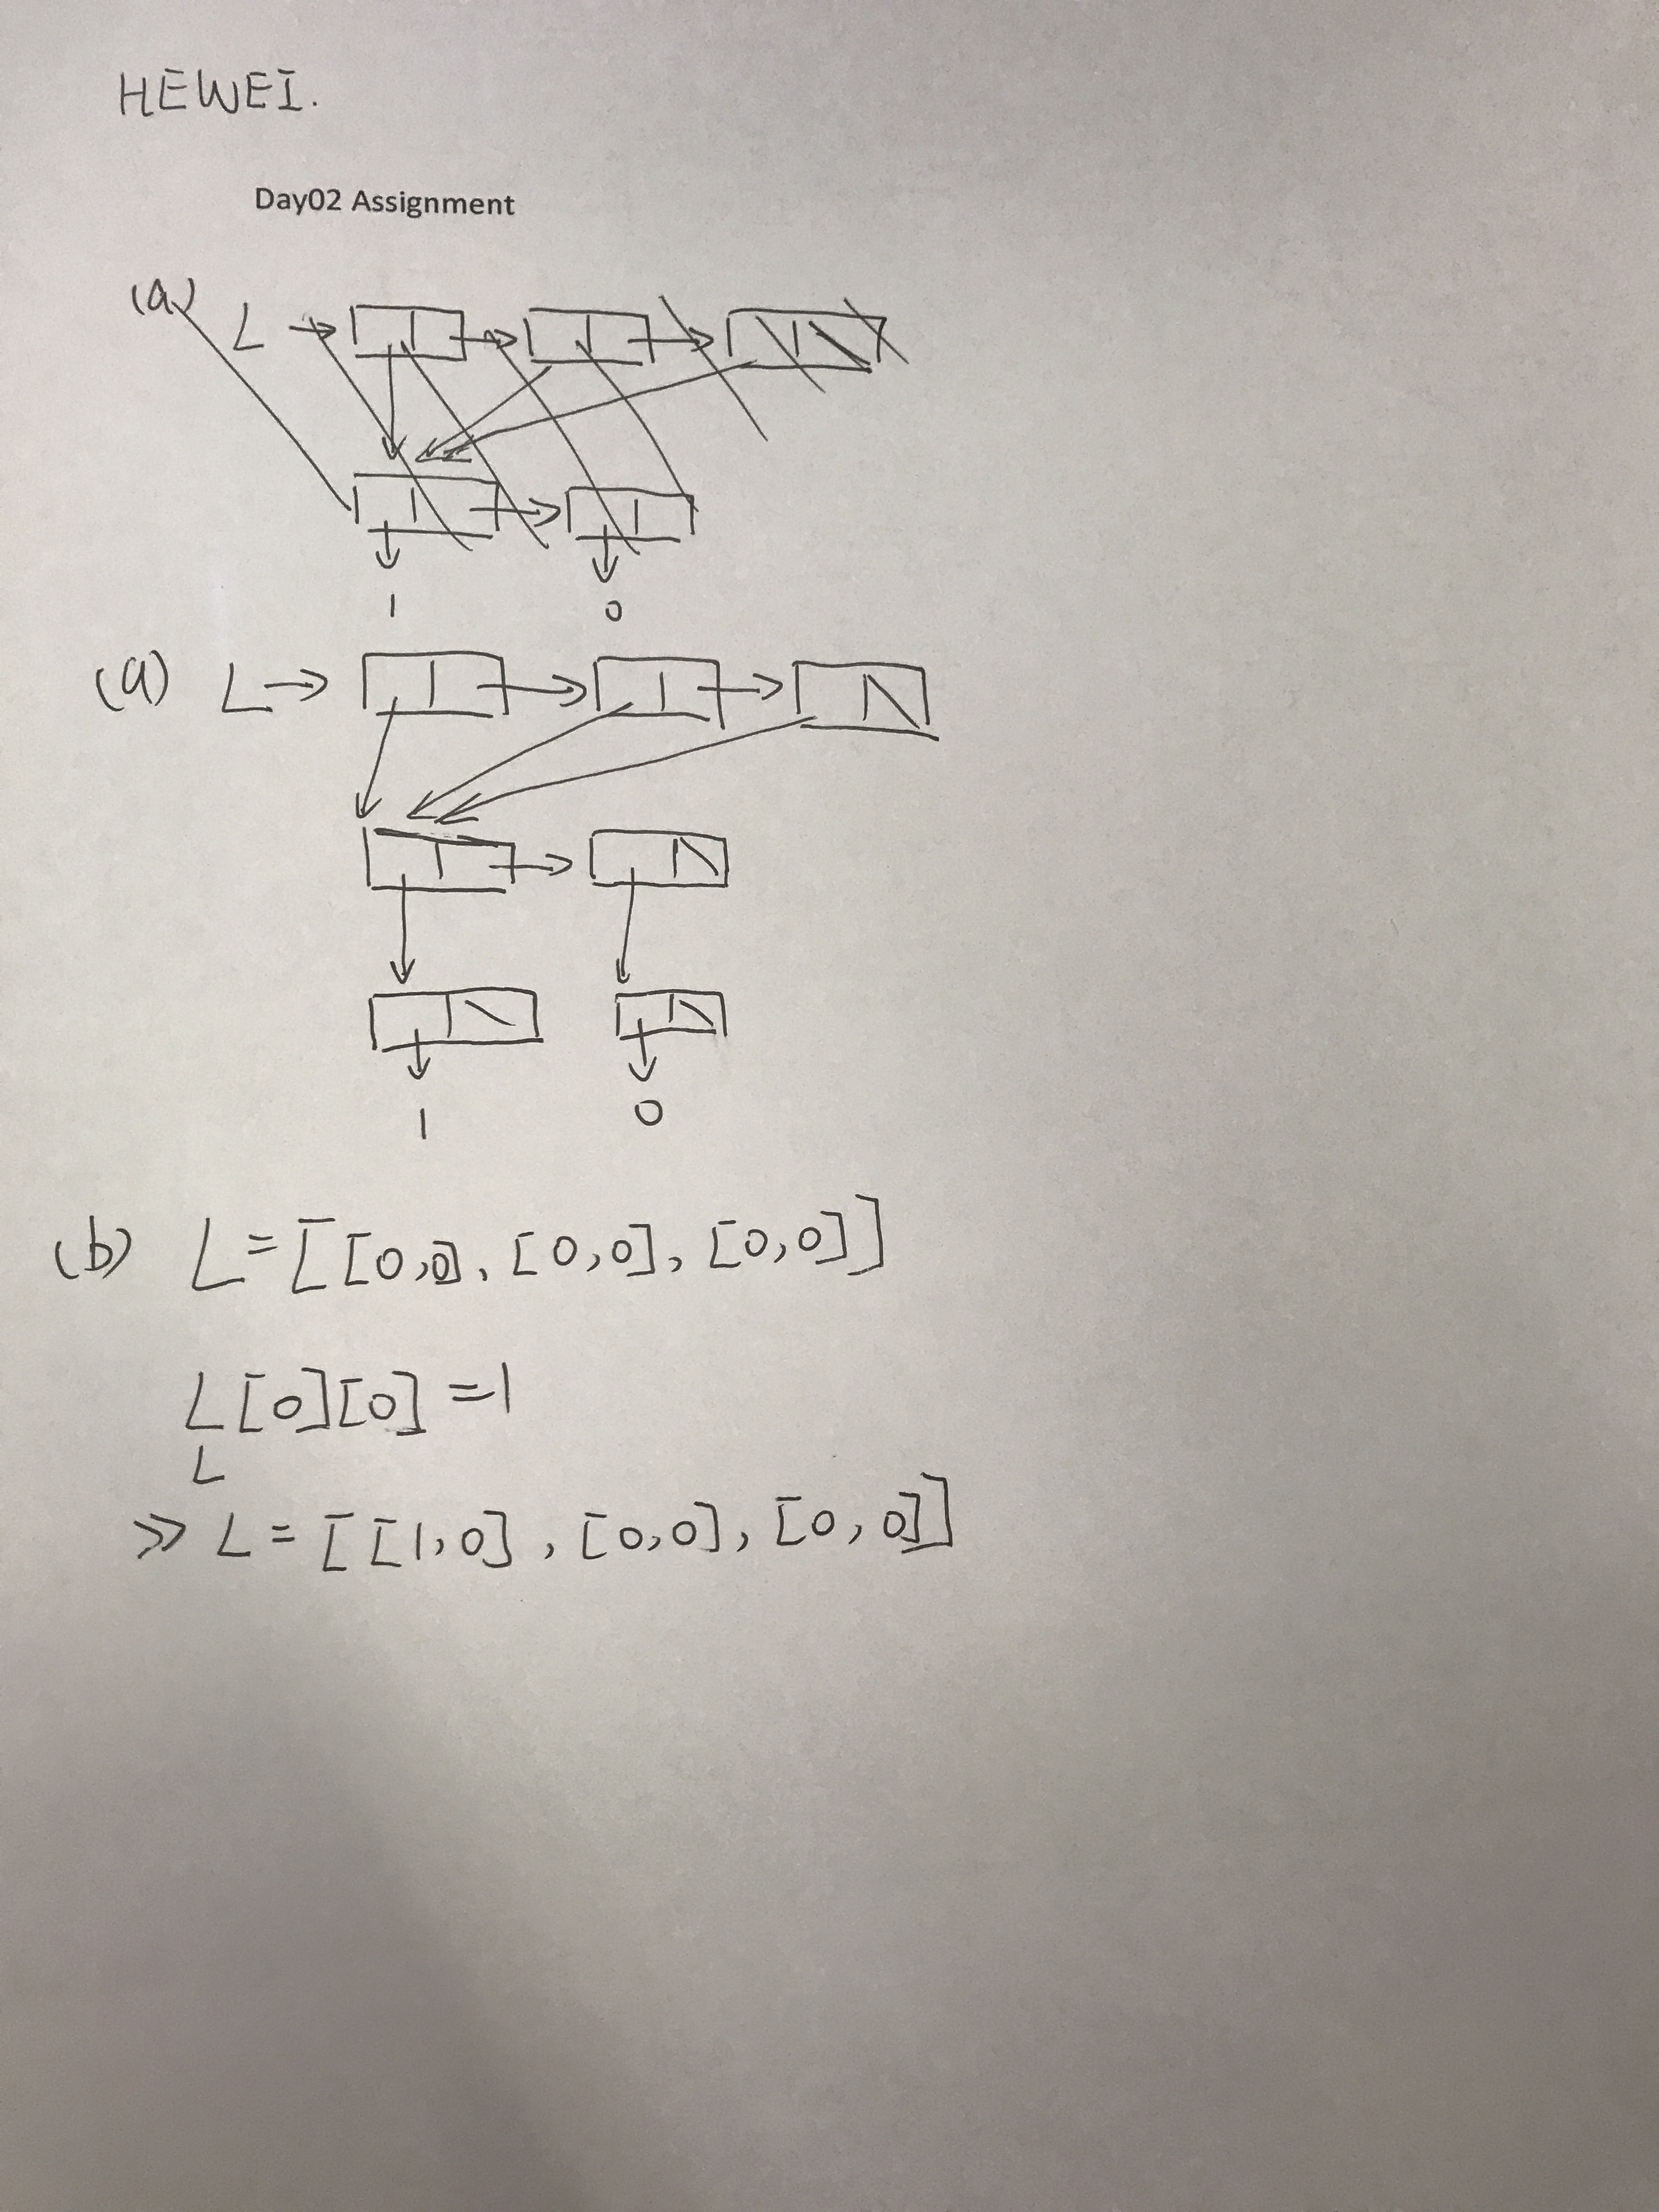 HEWEI.
Day02 Assignment
(a) L
1 0
(a) L
1 0
(b) L = [[0,0], [0,0], [0,0]]
L[0][0] = 1
L
>> L = [[1,0], [0,0], [0,0]]